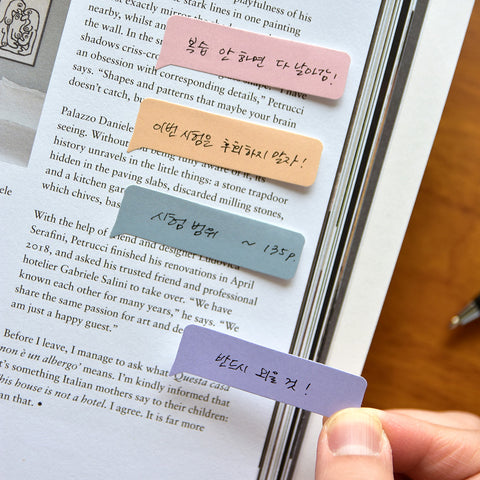 playfulness of his
stark lines in one painting
exactly mirror the
nearby, whilst an
the wall. In the s
shadows criss-cro
an obsession with corresponding details,” Petrucci
says. “Shapes and patterns that maybe your brain
doesn’t catch, bu
복습 안 하면 다 날아감!
Palazzo Daniele
seeing. Without being fully aware of it, its
history unravels in the little things: a stone trapdoor
hidden in the paving slabs, discarded milling stones,
and a kitchen gar
which chives, bas
이번 시험은 후회하지 말자!
시험 범위 ~ 135p.
With the help of friend and designer Ludovica
Serafini, Petrucci finished his renovations in April
2018, and asked his trusted friend and professional
hotelier Gabriele Salini to take over. “We have
known each other for many years,” he says. “We
share the same passion for art and de
am just a happy guest.”
반드시 외울 것!
Before I leave, I manage to ask what Questa casa
non è un albergo’ means. I’m kindly informed that
t’s something Italian mothers say to their children:
his house is not a hotel. I agree. It is far more
an that. •